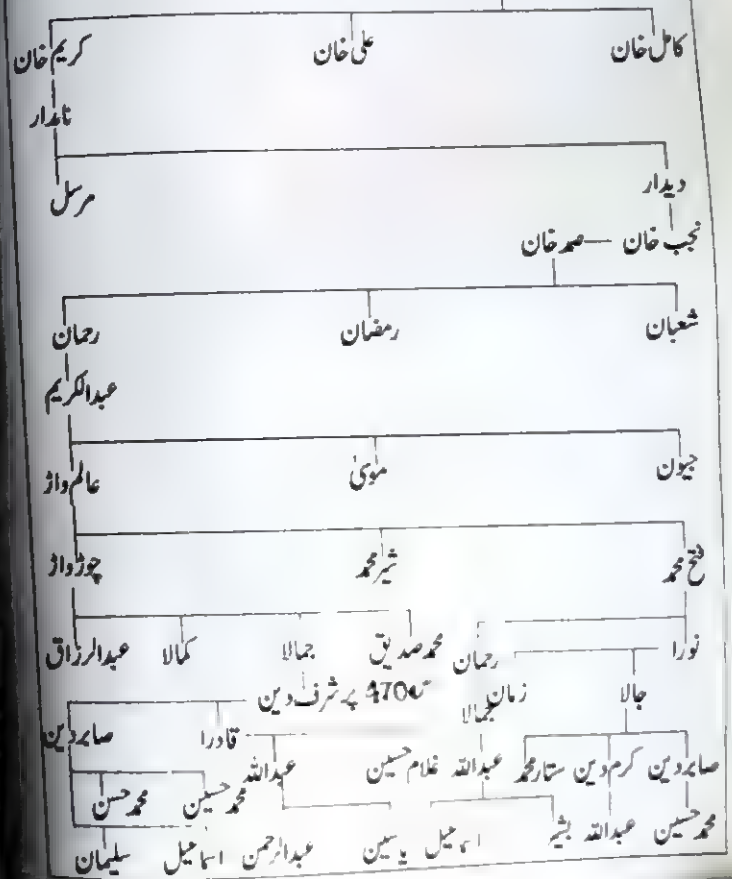 کامل خان علی خان کریم خان
نامدار
دیدار مرسل
نجب خان — صمد خان
شعبان رمضان رحمان
عبدالکریم
جیون موسیٰ عالم واڑ
فتح محمد شیر محمد چوڑ واڑ
نورا رحمان محمد صدیق جمالا کمالا عبدالرزاق
جالا زمان جمالا 470 پر شرف دین
قادرا صابر دین
صابر دین کرم دین ستار محمد عبداللہ غلام حسین عبداللہ
محمد حسین محمد حسن
محمد حسین عبداللہ بشیر اسماعیل یاسین عبدالرحمن اسماعیل سلیمان